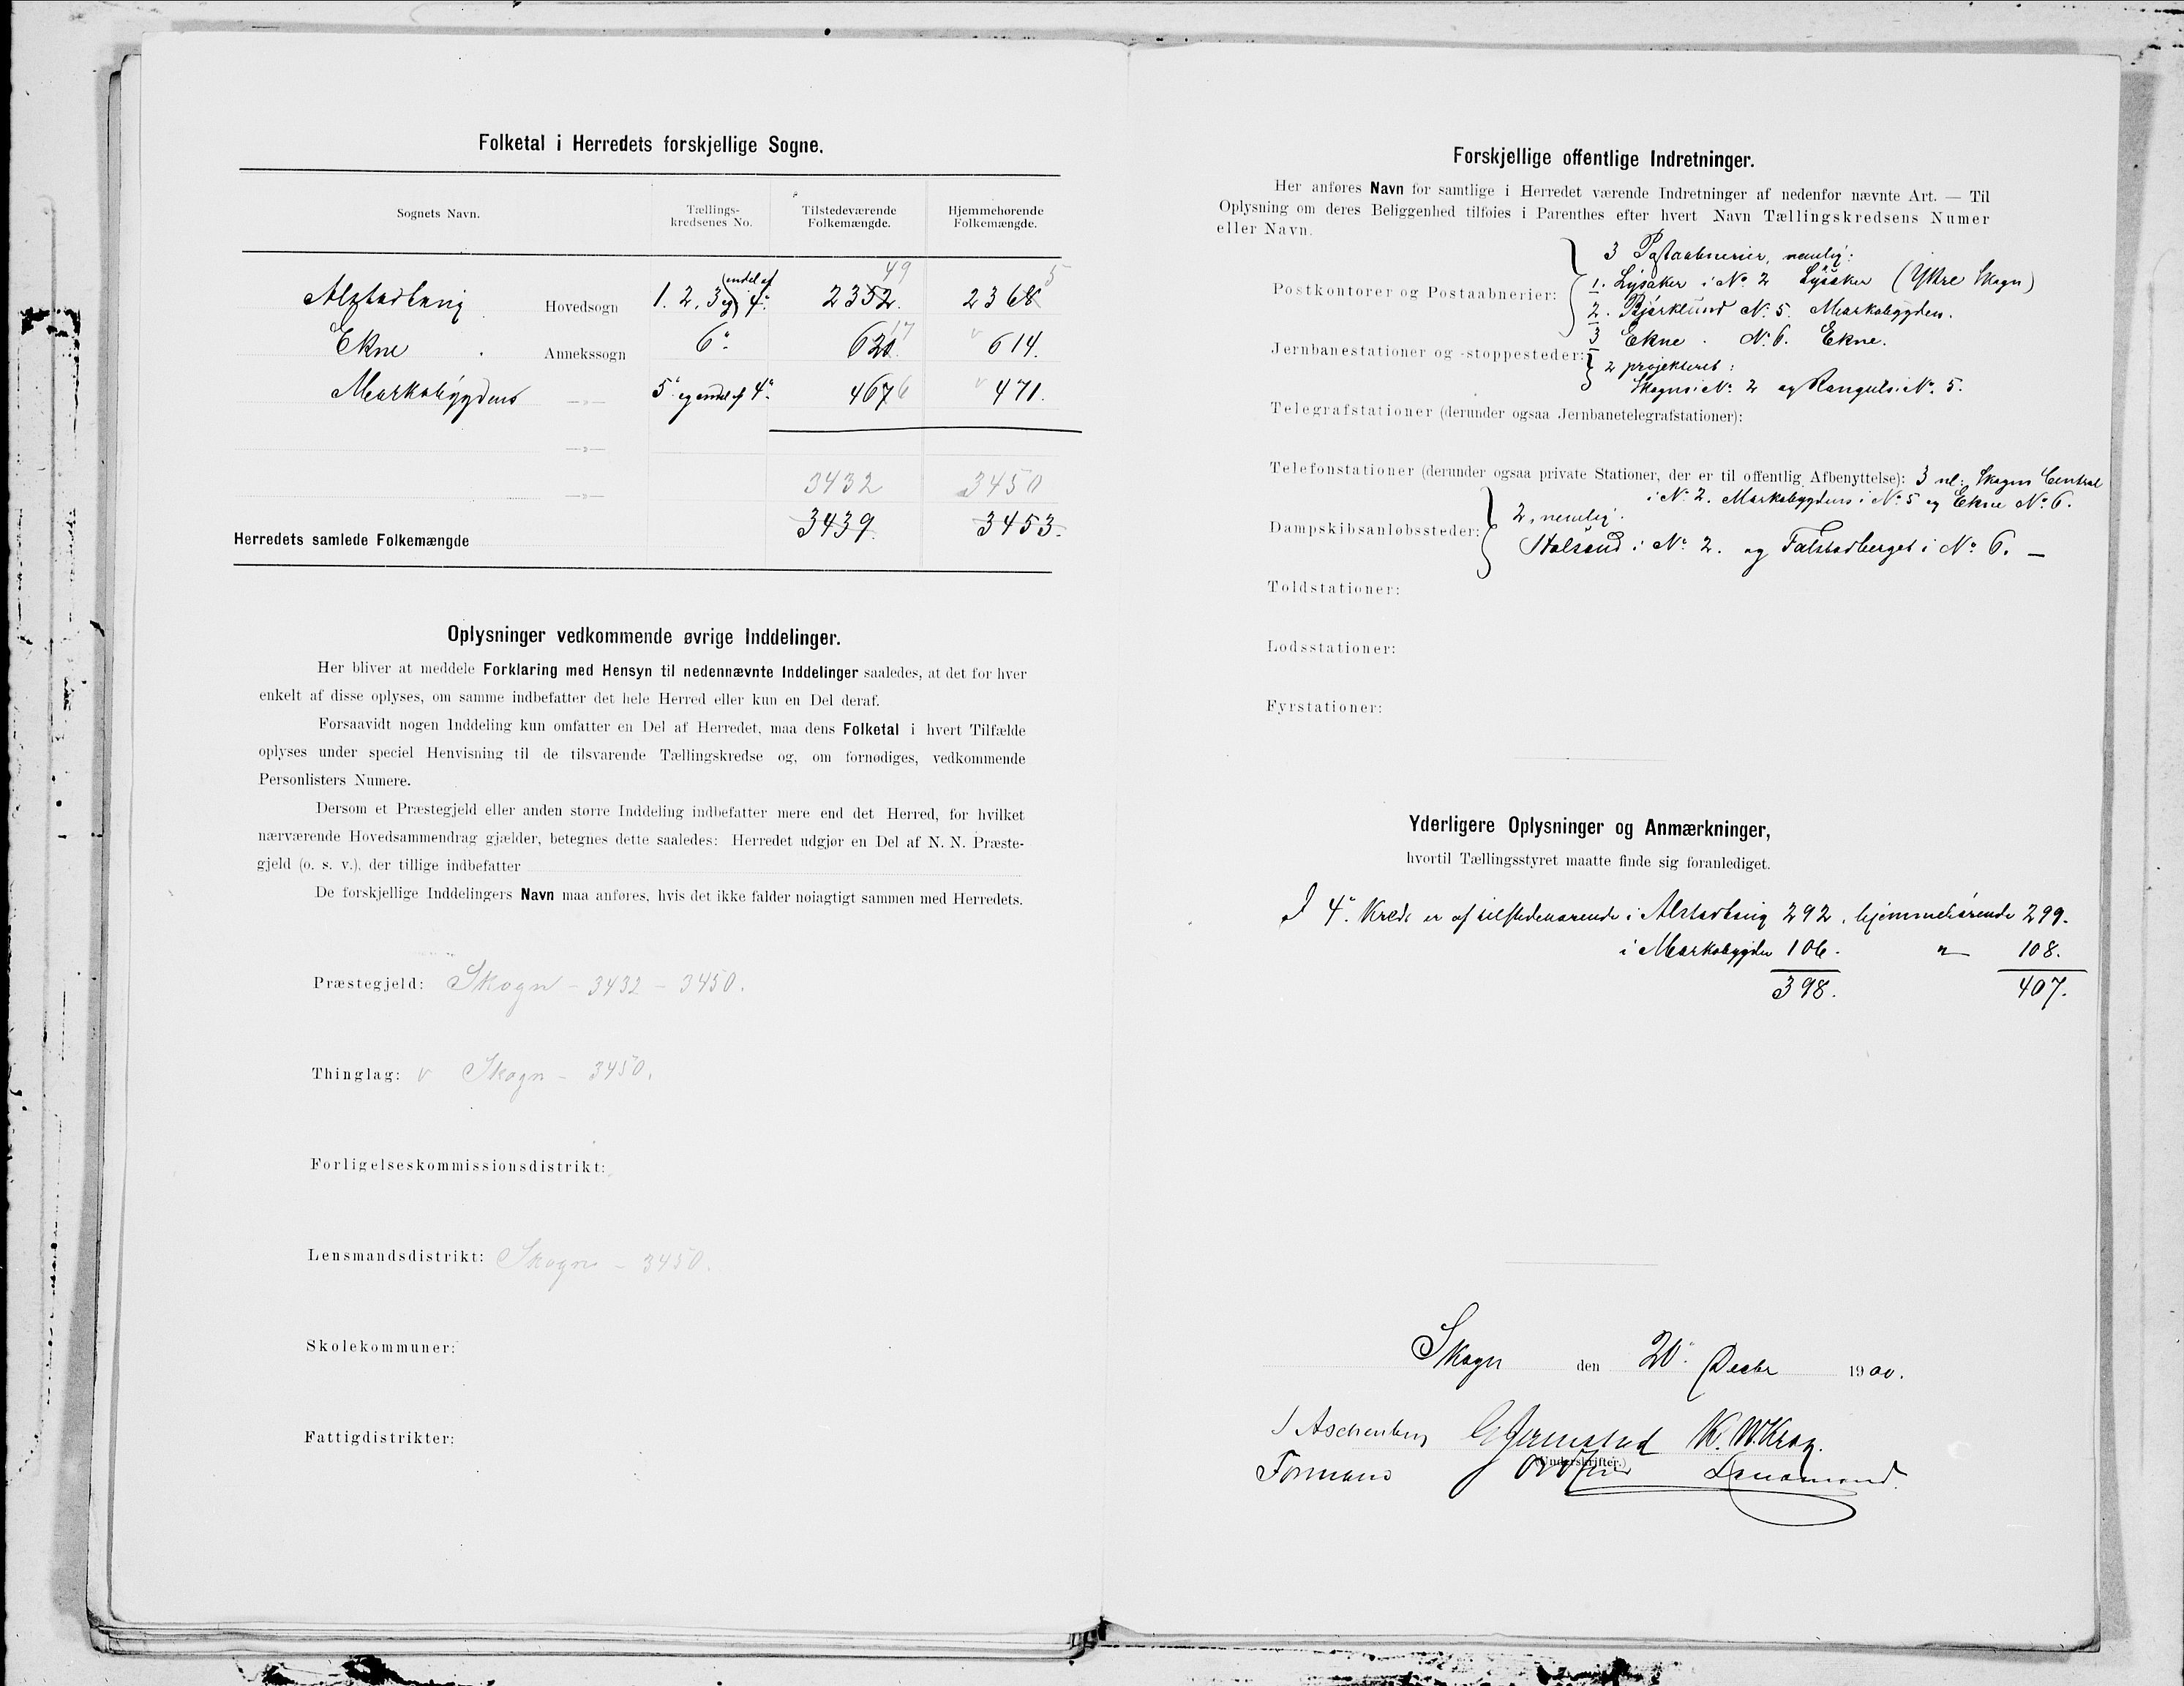 Folketal i Herredets forskjellige Sogne.
Sognets Navn. Tællings-kredsenes No. Tilstedeværende Folkemængde. Hjemmehørende Folkemængde.
49 5
Alstadhaug Hovedsogn 1. 2, 3 og endel af 4º. 2352. 2368
17
Ekne Annekssogn 6º. 620. v 614.
Markabygdens —»— 5º og endel af 4º. 467 6 v 471.
—»—
—»— 3432 3450
Herredets samlede Folkemængde 3439. 3453.
Oplysninger vedkommende øvrige Inddelinger.
Her bliver at meddele Forklaring med Hensyn til nedennævnte Inddelinger saaledes, at det for hver
enkelt af disse oplyses, om samme indbefatter det hele Herred eller kun en Del deraf.
Forsaavidt nogen Inddeling kun omfatter en Del af Herredet, maa dens Folketal i hvert Tilfælde
oplyses under speciel Henvisning til de tilsvarende Tællingskredse og, om fornødiges, vedkommende
Personlisters Numere.
Dersom et Præstegjeld eller anden større Inddeling indbefatter mere end det Herred, for hvilket
nærværende Hovedsammendrag gjælder, betegnes dette saaledes: Herredet udgjør en Del af N. N. Præste-
gjeld (o. s. v.), der tillige indbefatter
De forskjellige Inddelingers Navn maa anføres, hvis det ikke falder nøiagtigt sammen med Herredets.
Præstegjeld: Skogn – 3432 – 3450.
Thinglag: v Skogn – 3450.
Forligelseskommissionsdistrikt:
Lensmandsdistrikt: Skogn – 3450.
Skolekommuner:
Fattigdistrikter:
Forskjellige offentlige Indretninger.
Her anføres Navn for samtlige i Herredet værende Indretninger af nedenfor nævnte Art. — Til
Oplysning om deres Beliggenhed tilføies i Parenthes efter hvert Navn Tællingskredsens Numer
eller Navn.
3 Postaabnerier, nemlig:
Postkontorer og Postaabnerier: 1. Lysaker i No 2 Lysaker (Yttre Skogn)
2. Bjørklund No. 5. Markabygden.
3 Ekne. No. 6. Ekne.
Jernbanestationer og -stoppesteder: 2 projekteret:
Skogns i No. 2 og Ranguls i No. 5.
Telegrafstationer (derunder ogsaa Jernbanetelegrafstationer):
Telefonstationer (derunder ogsaa private Stationer, der er til offentlig Afbenyttelse): 3 nl: Skogns Central
i No. 2. Markabygdens i No 5 og Ekne No 6.
Dampskibsanløbsstedер: 2, nemlig:
Holsand i No. 2. og Falstadberget i No. 6. —
Toldstationer:
Lodsstationer:
Fyrstationer:
Yderligere Oplysninger og Anmærkninger,
hvortil Tællingsstyret maatte finde sig foranlediget.
I 4º. Kreds er af tilstedeværende i Alstadhaug 292. hjemmehørende 299.
i Markabygden 106. " 108.
398. 407.
Skogn den 20. Decbr 1900.
Aschenberg Gjermstad K. W. Krog.
(Underskrifter.)
Formand Ordfører Lensmand.